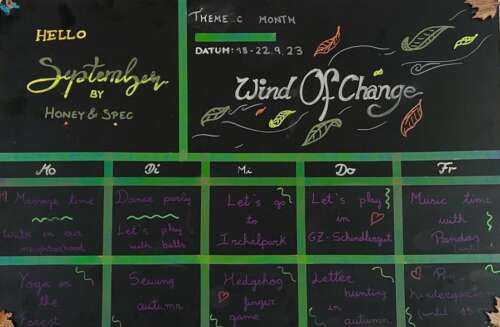 HELLO
September
BY
HONEY & SPEC
THEME C MONTH
DATUM: 18-22.9.23
Wind Of Change
Mo Di Mi Do Fr
Massage time
Walk in our
neighbourhood
Dance party
Let's play
with balls
Let's go
to
Irchelpark
Let's play
in
GZ-Schindlergut
Music time
with
Pandas
Yoga in
the
Forest
Sewing
autumn
Hedgehog
finger
game
Letter
hunting
in
autumn
Kindergarten